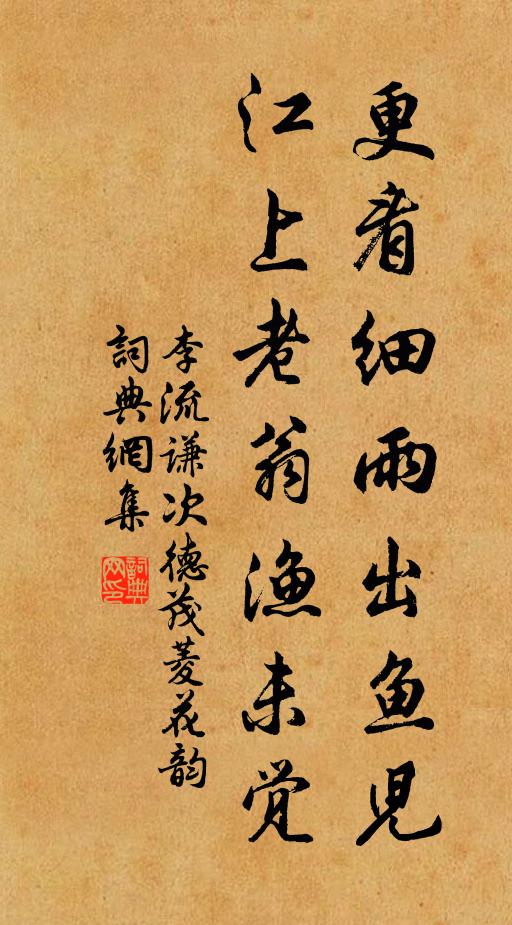 更看细雨出鱼児
江上老翁渔未觉
李流谦次德茂菱花韵
词典網集
詞典网印